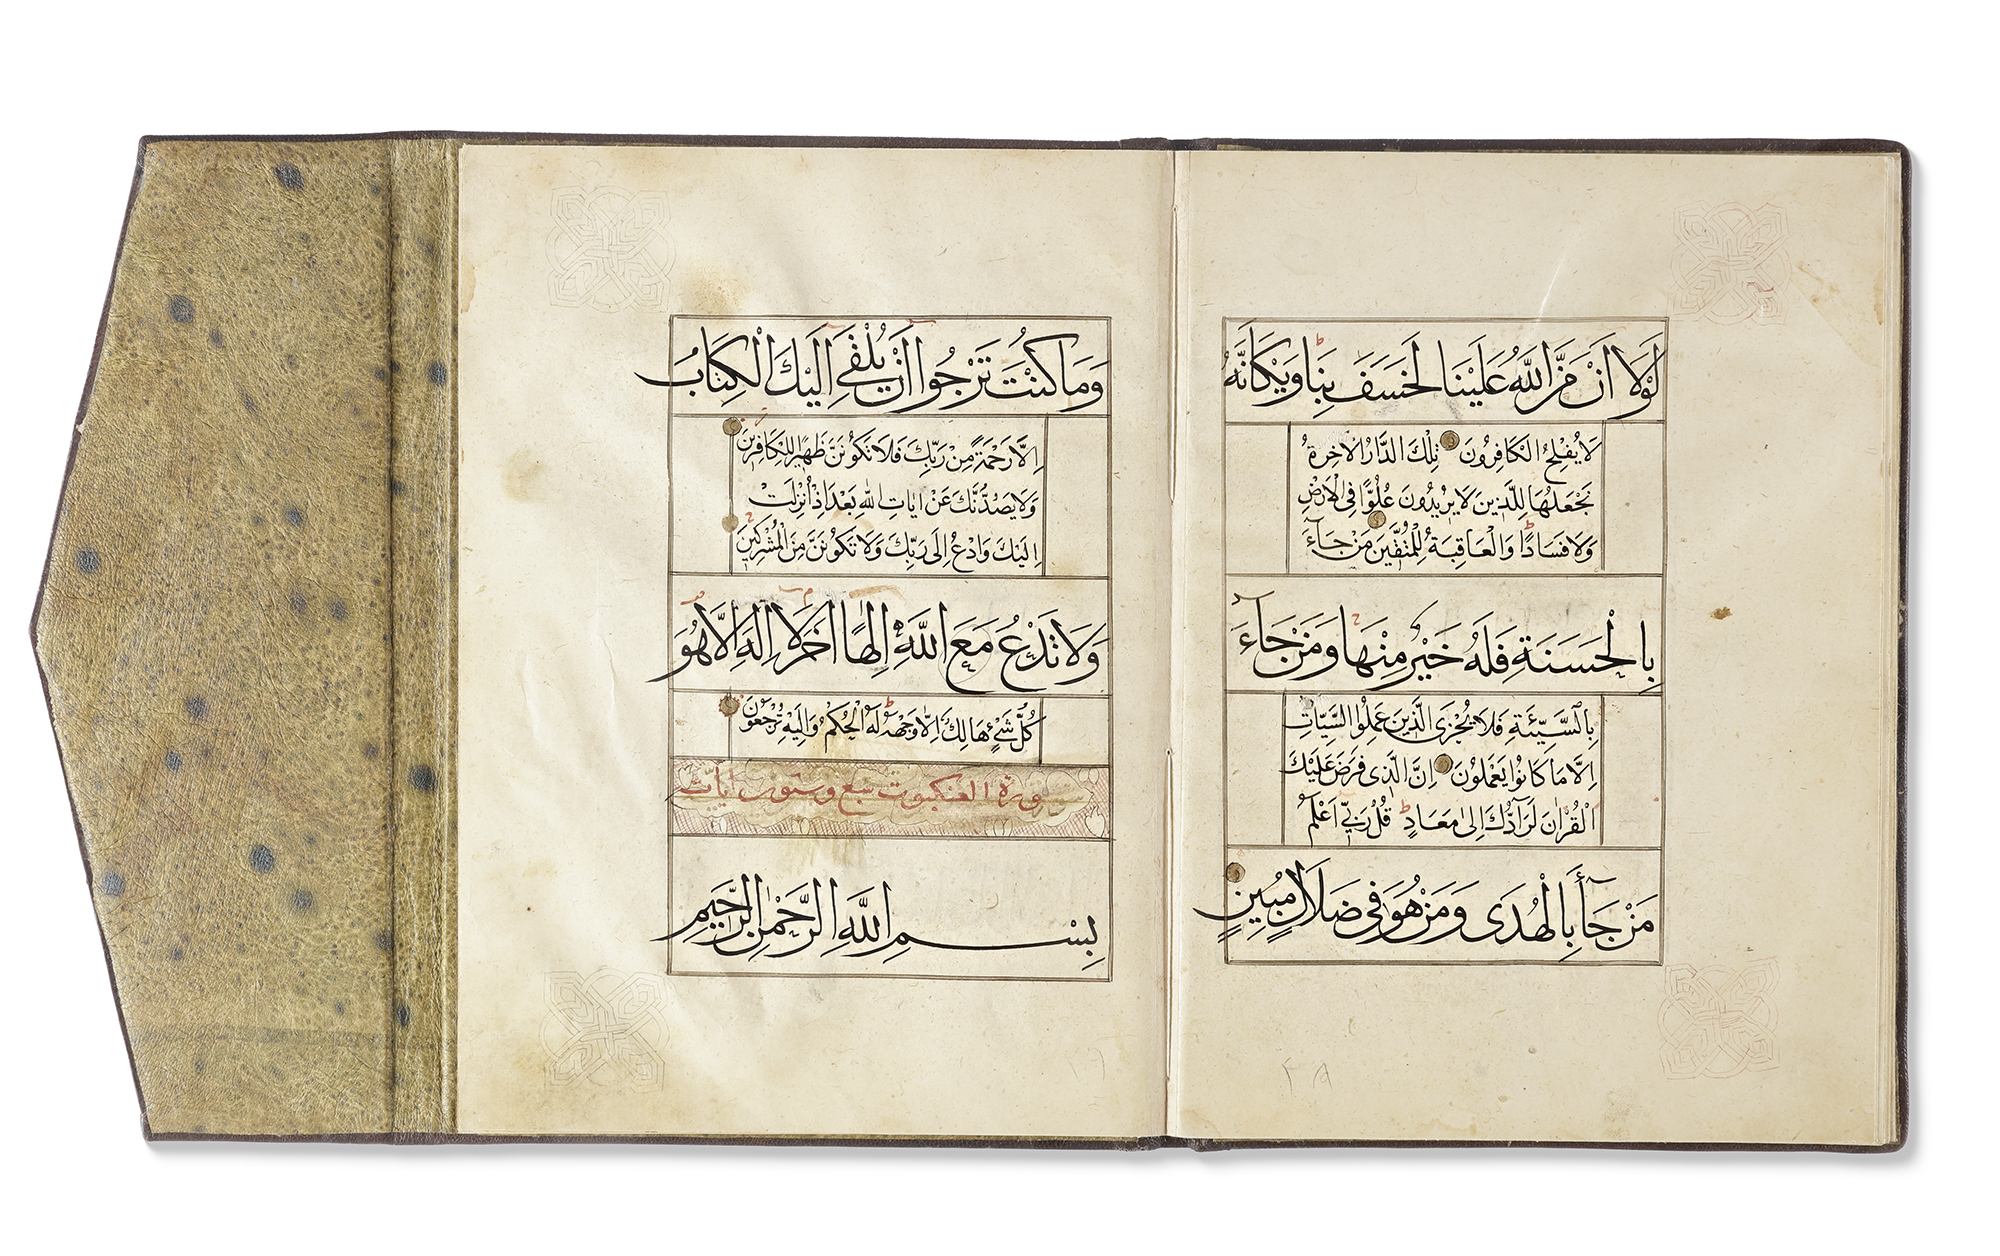 لَوْلَا أَنْ مَنَّ اللَّهُ عَلَيْنَا لَخَسَفَ بِنَا وَيْكَأَنَّهُ
لَا يُفْلِحُ الْكَافِرُونَ تِلْكَ الدَّارُ الْآخِرَةُ
نَجْعَلُهَا لِلَّذِينَ لَا يُرِيدُونَ عُلُوًّا فِي الْأَرْضِ
وَلَا فَسَادًا ط وَالْعَاقِبَةُ لِلْمُتَّقِينَ مَنْ جَاءَ
بِالْحَسَنَةِ فَلَهُ خَيْرٌ مِنْهَا وَمَنْ جَاءَ
بِالسَّيِّئَةِ فَلَا يُجْزَى الَّذِينَ عَمِلُوا السَّيِّاتِ
إِلَّا مَا كَانُوا يَعْمَلُونَ إِنَّ الَّذِي فَرَضَ عَلَيْكَ
الْقُرْآنَ لَرَآدُّكَ إِلَى مَعَادٍ ط قُلْ رَبِّي أَعْلَمُ
مَنْ جَاءَ بِالْهُدَى وَمَنْ هُوَ فِي ضَلَالٍ مُبِينٍ
٢٨
وَمَا كُنْتَ تَرْجُوا أَنْ يُلْقَى إِلَيْكَ الْكِتَابُ
إِلَّا رَحْمَةً مِنْ رَبِّكَ فَلَا تَكُونَنَّ ظَهِيرًا لِلْكَافِرِينَ
وَلَا يَصُدُّنَّكَ عَنْ آيَاتِ اللَّهِ بَعْدَ إِذْ أُنْزِلَتْ
إِلَيْكَ وَادْعُ إِلَى رَبِّكَ وَلَا تَكُونَنَّ مِنَ الْمُشْرِكِينَ
وَلَا تَدْعُ مَعَ اللَّهِ إِلَهًا آخَرَ م لَا إِلَهَ إِلَّا هُوَ
كُلُّ شَيْءٍ هَالِكٌ إِلَّا وَجْهَهُ ط لَهُ الْحُكْمُ وَإِلَيْهِ تُرْجَعُونَ
سورة العنكبوت سبع وستون آيات
بِسْمِ اللَّهِ الرَّحْمَنِ الرَّحِيمِ